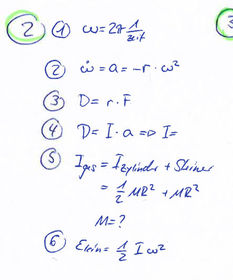 2 1 ω = 2π 1/Zeit
3
2 ω̇ = a = -r · ω²
3 D = r · F
4 D = I · a => I =
5 Iges = IZylinder + Steiner
= 1/2 MR² + MR²
M = ?
6 Ekin = 1/2 I ω²